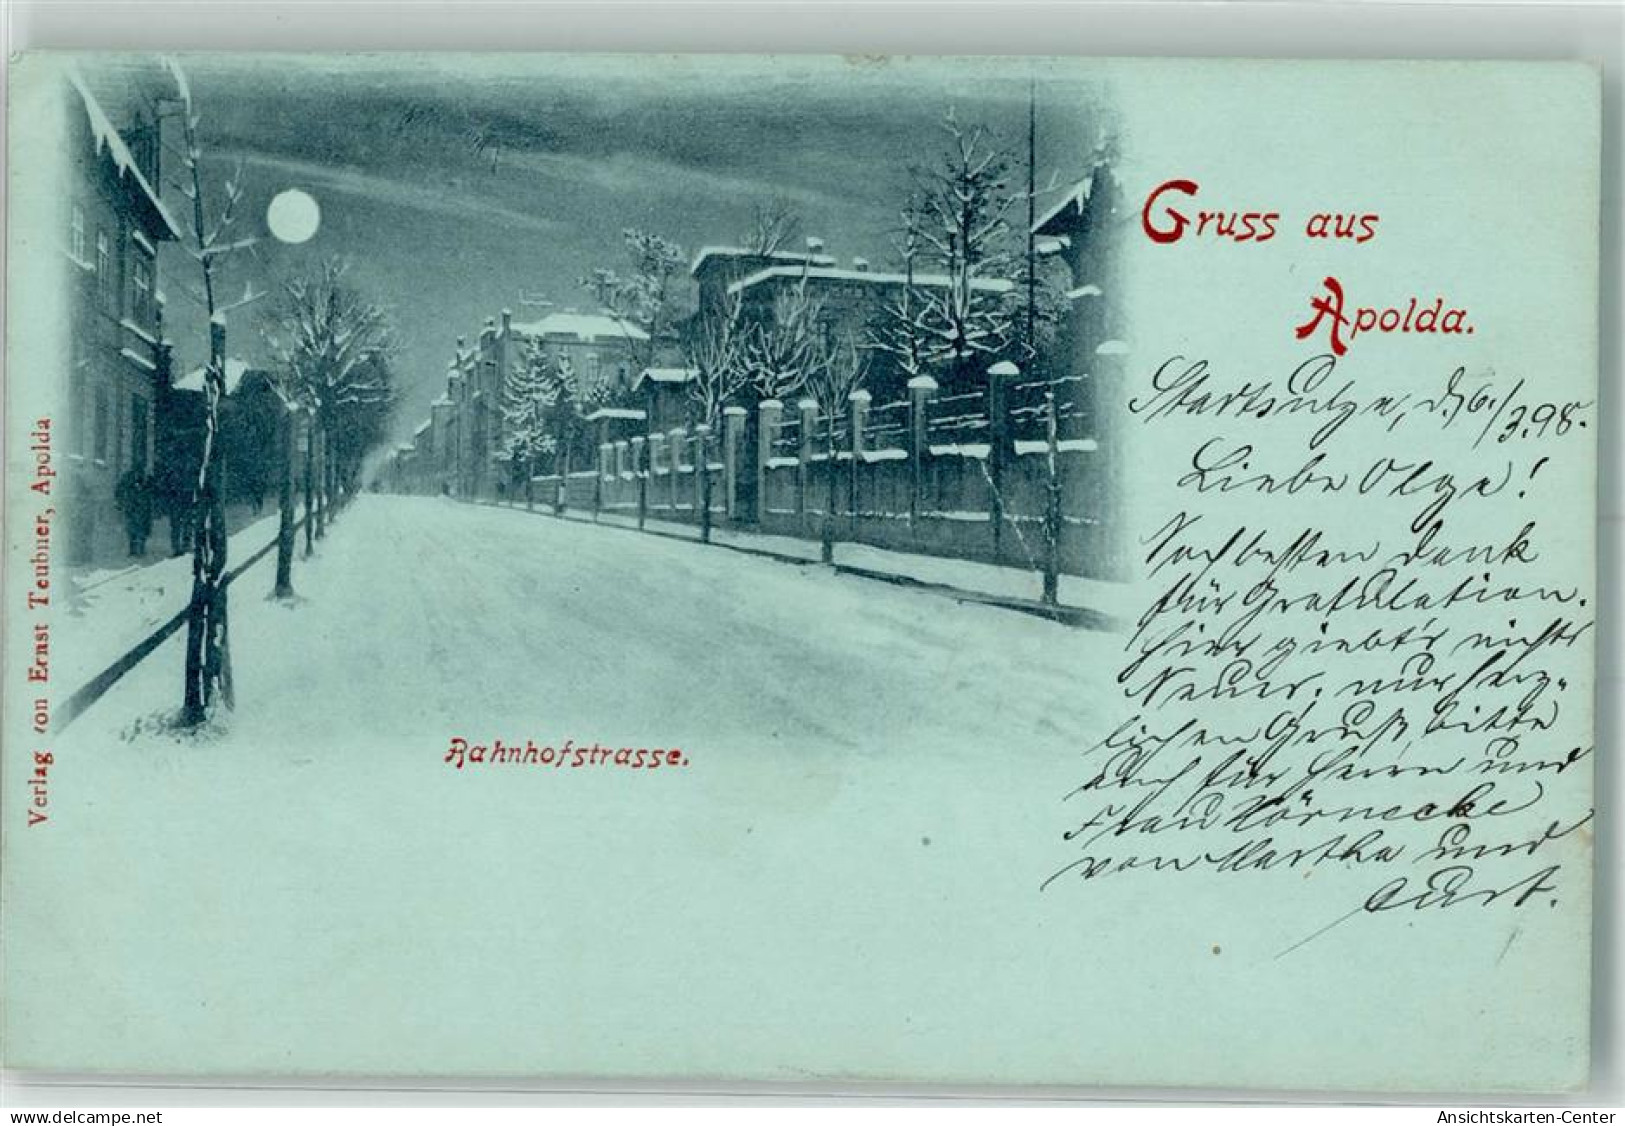 Gruss aus
Apolda.
Stadtsulza, d. 6./3.98.
Liebe Olga!
Noch besten Dank
für Gratulation.
Hier giebt's nichts
Neues, nur herz-
lichen Gruß, bitte
auch für Herrn und
Frau Hörnecke
von Martha und
Curt.
Bahnhofstrasse.
Verlag von Ernst Teubner, Apolda
www.delcampe.net
Ansichtskarten-Center